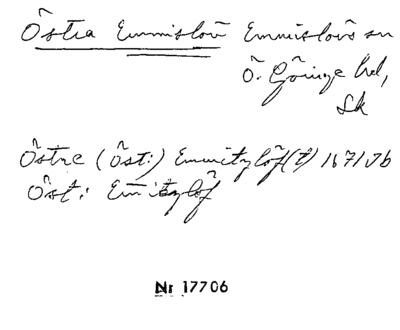 Östra Emmislöv Emmislövs sn
Ö. Göinge hd,
Sk
Östre (Öst:) Emmitzlöf(t) 1671 Jb
Öst: Emitzlöf
Nr 17706